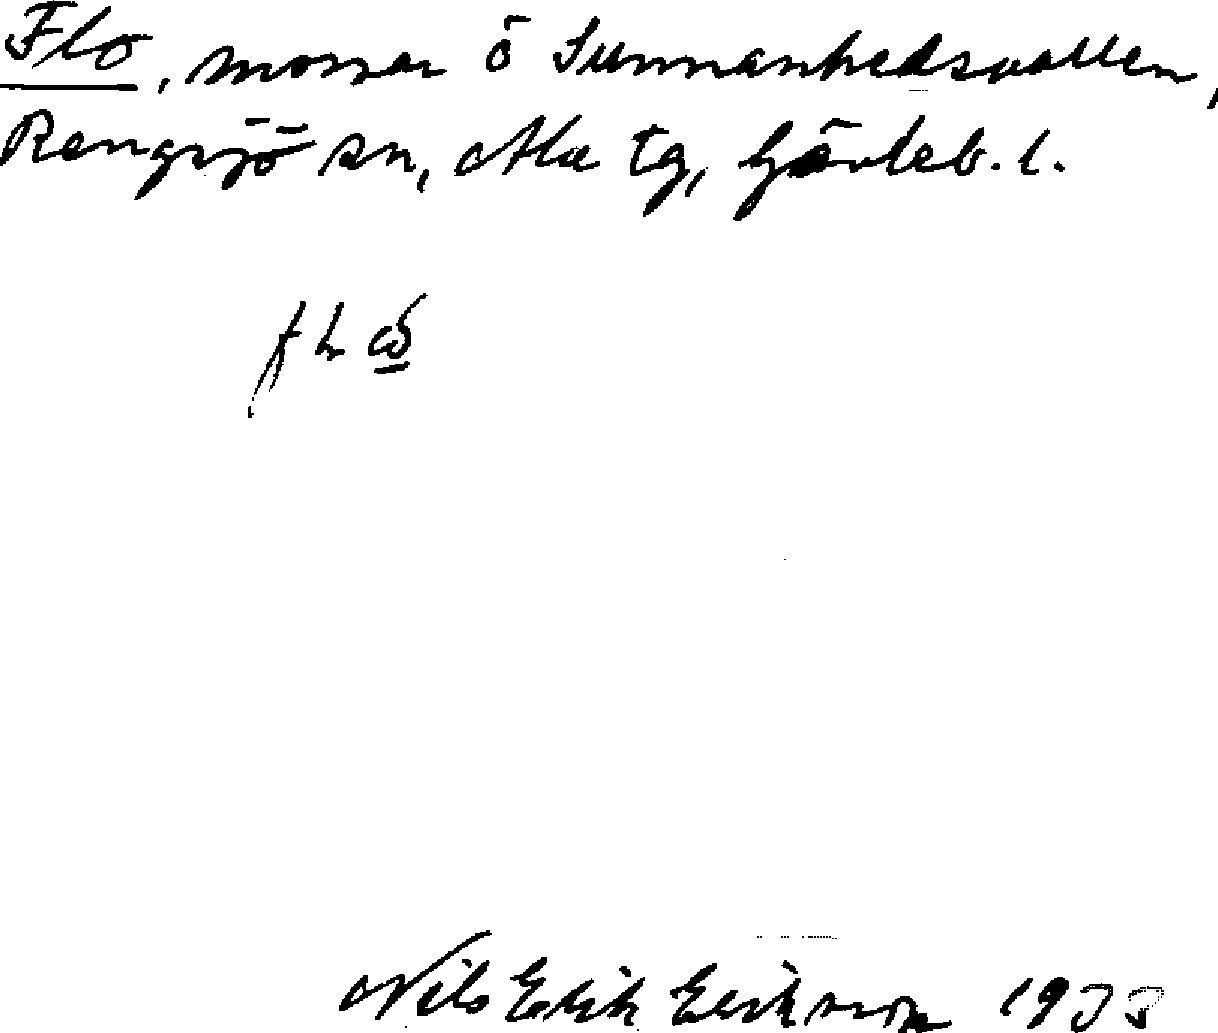 Flo, mossar ö Sunnanhedsvallen,
Rengsjö sn, Ala tg, Gävleb. l.
Nils Erik Eriksson 1933